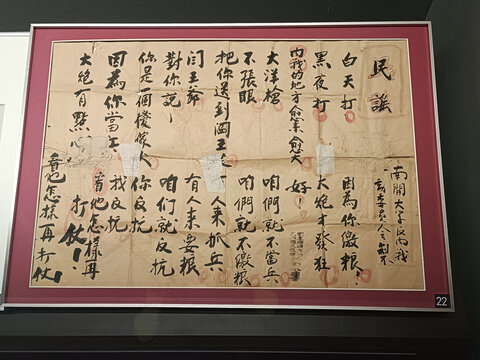 民謠
白天打
黑夜打
內战的地方愈来愈大
大洋槍
不張眼
把你送到
閻王爺
對你說
你是一個傻傢人
因為你當
大砲有點
南開大学反內战
委員会制
因為你繳糧！
大砲才發狂
好！
咱們就不當兵
咱們就不繳糧
人來抓兵
有人來要糧
咱们就反抗
你反抗
我反抗
看他怎樣再
打仗！
看他怎樣再打仗！
22